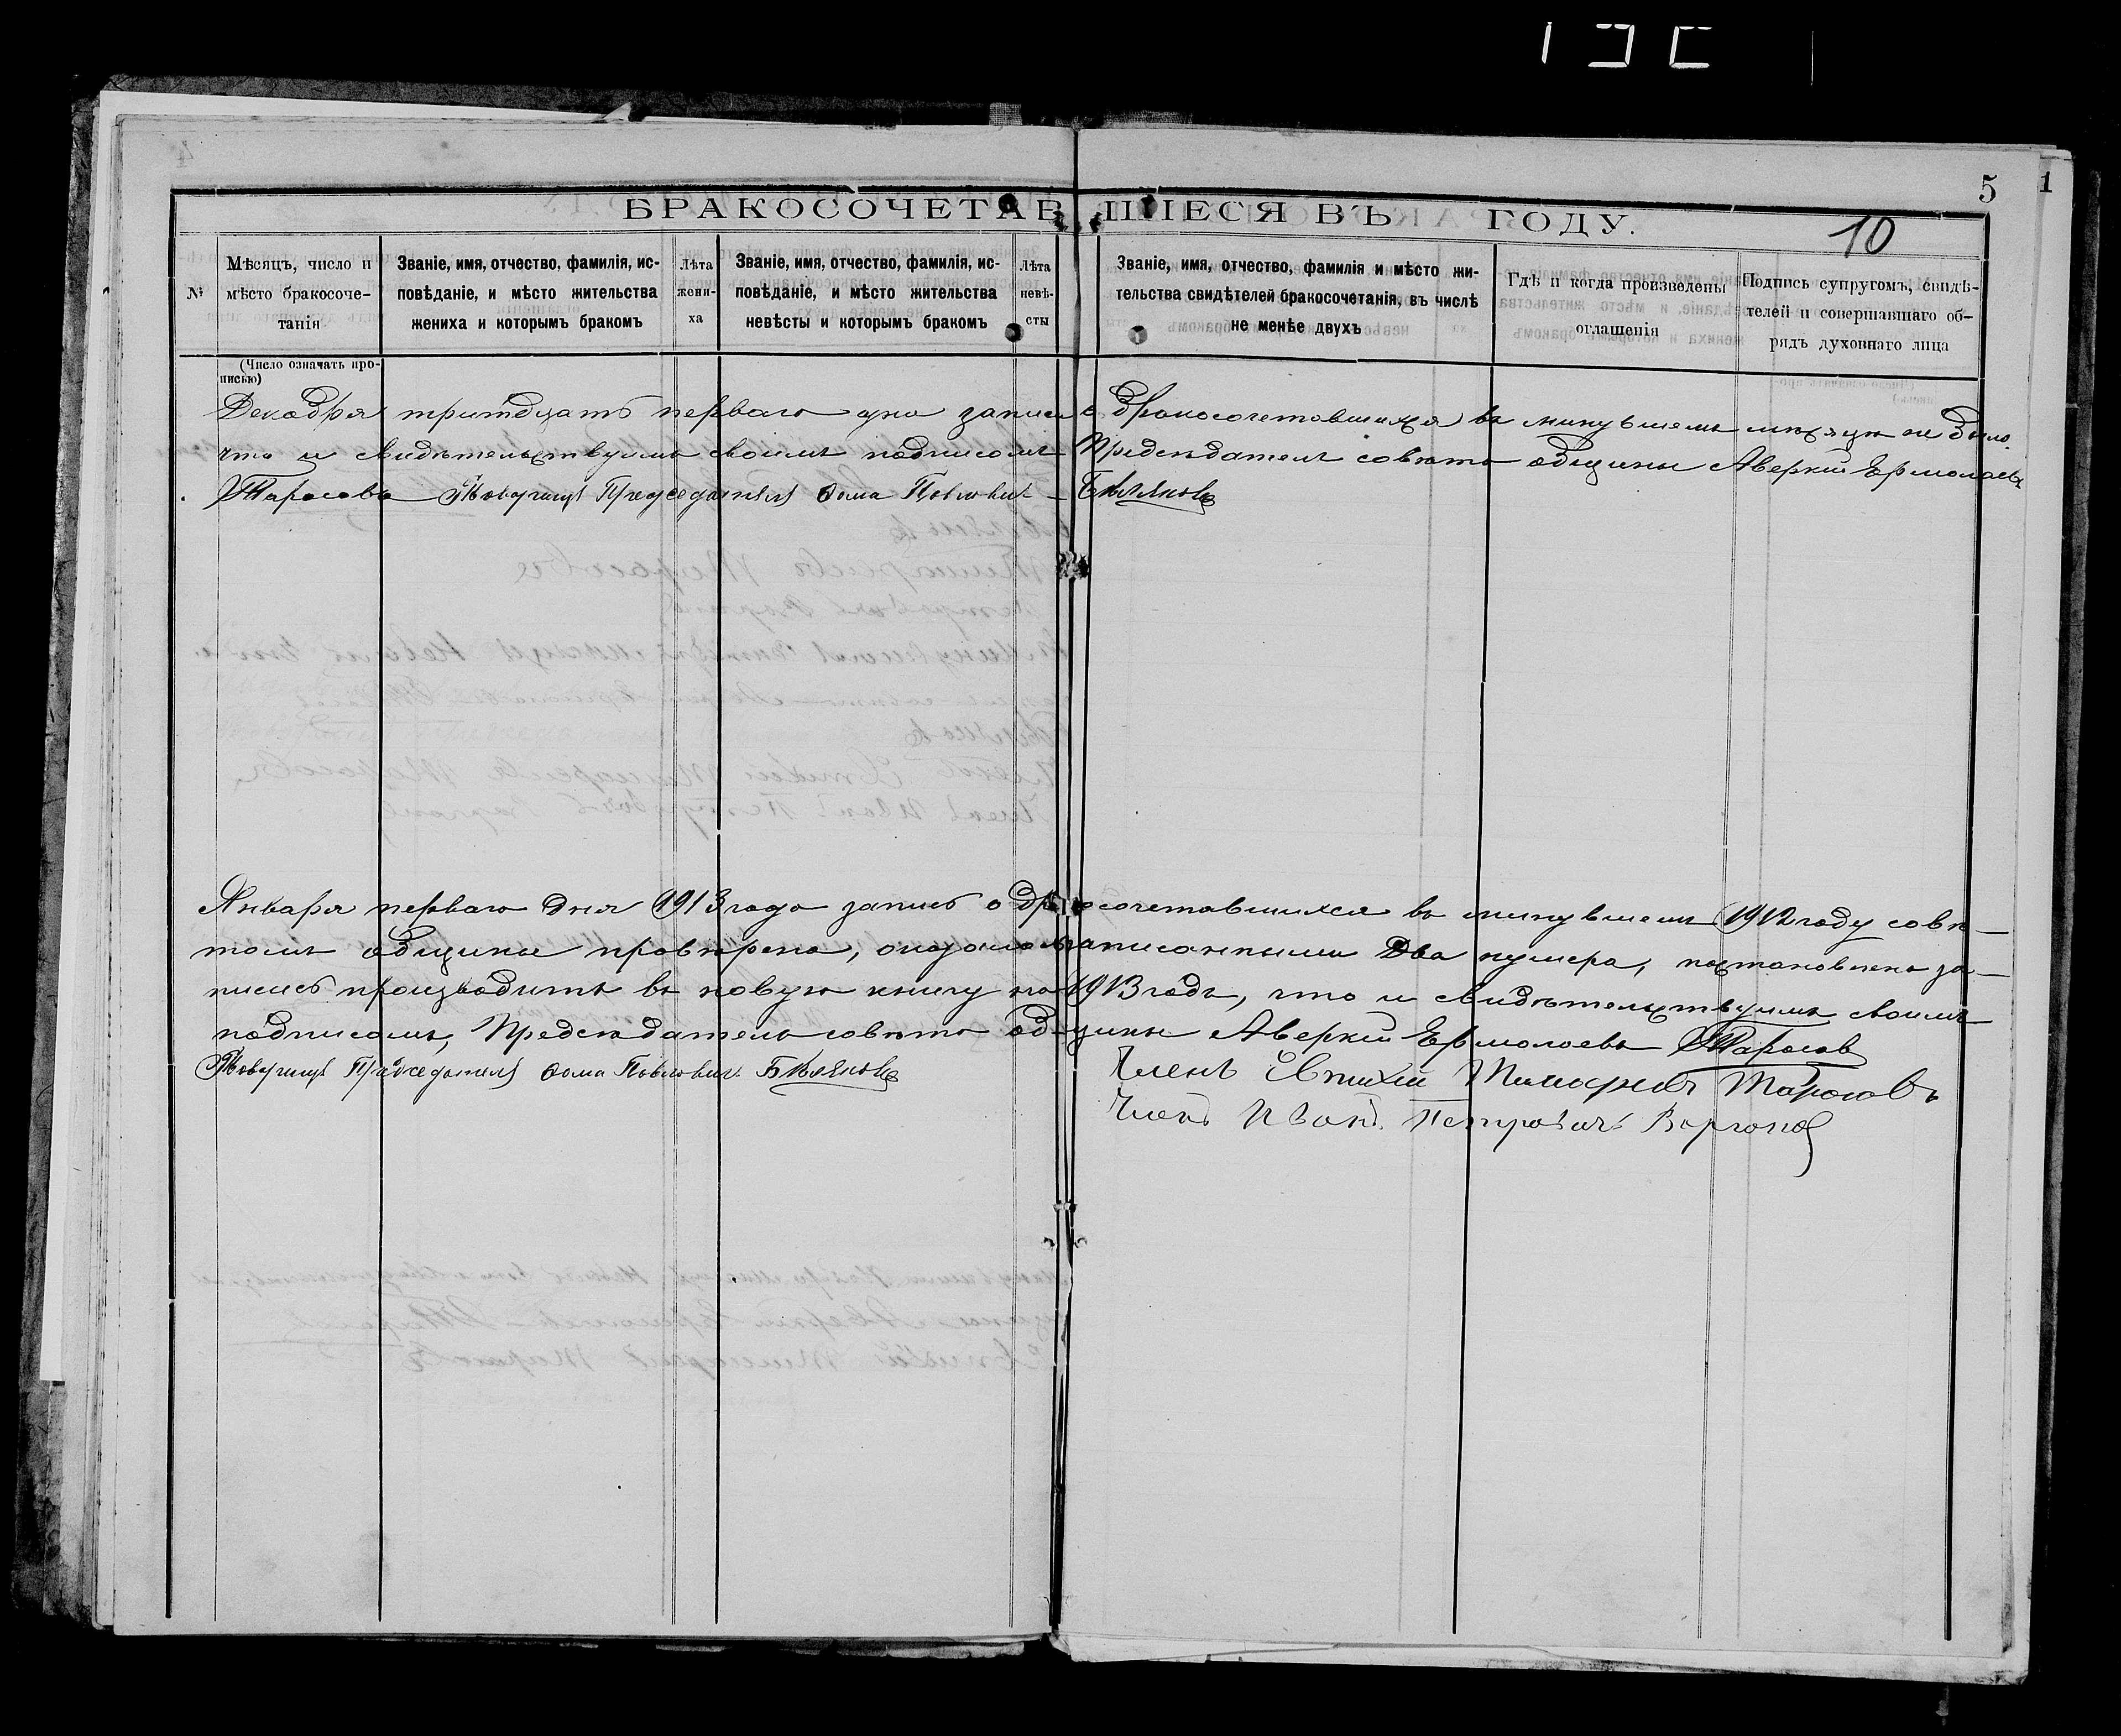 5
1
10
БРАКОСОЧЕТАВШІЕСЯ ВЪ ГОДУ.
№
Мѣсяцъ, число и
мѣсто бракосоче-
танія.
Званіе, имя, отчество, фамилія, ис-
повѣданіе, и мѣсто жительства
жениха и которымъ бракомъ
Лѣта
жени-
ха
Званіе, имя, отчество, фамилія, ис-
повѣданіе, и мѣсто жительства
невѣсты и которымъ бракомъ
Лѣта
невѣ-
сты
Званіе, имя, отчество, фамилія и мѣсто жи-
тельства свидѣтелей бракосочетанія, въ числѣ
не менѣе двухъ
Гдѣ и когда произведены
оглашенія
Подпись супругомъ, свидѣ-
телей и совершавшаго об-
рядъ духовнаго лица
(Число означать про-
писью)
Декабря тритдцать перваго дня записи о бракосочетавшихся въ минувшемъ мѣсяцѣ не было,
что и свидѣтельствуимъ своимъ подписомъ Предсѣдатель совѣта общины Аверкій Ермолаевъ
Тарасовъ Товарищъ Председателя Фома Павловичъ Бѣляковъ
Января перваго дня 1913 года запись о бракосочетавшихся въ минувшемъ 1912 году совѣ-
томъ общины провѣрена, оказалось записанными два нумера, постановлено за-
писись производить въ новую книгу на 1913 годъ, что и свидѣтельствуимъ своимъ
подписомъ, Предсѣдатель совѣта общины Аверкій Ермолаевъ Тарасов
Товарищъ Председателя Фома Павловичъ Бѣляковъ
Членъ Евтихій Тимофеевъ Тарасовъ
Членъ Иванъ Петровичъ